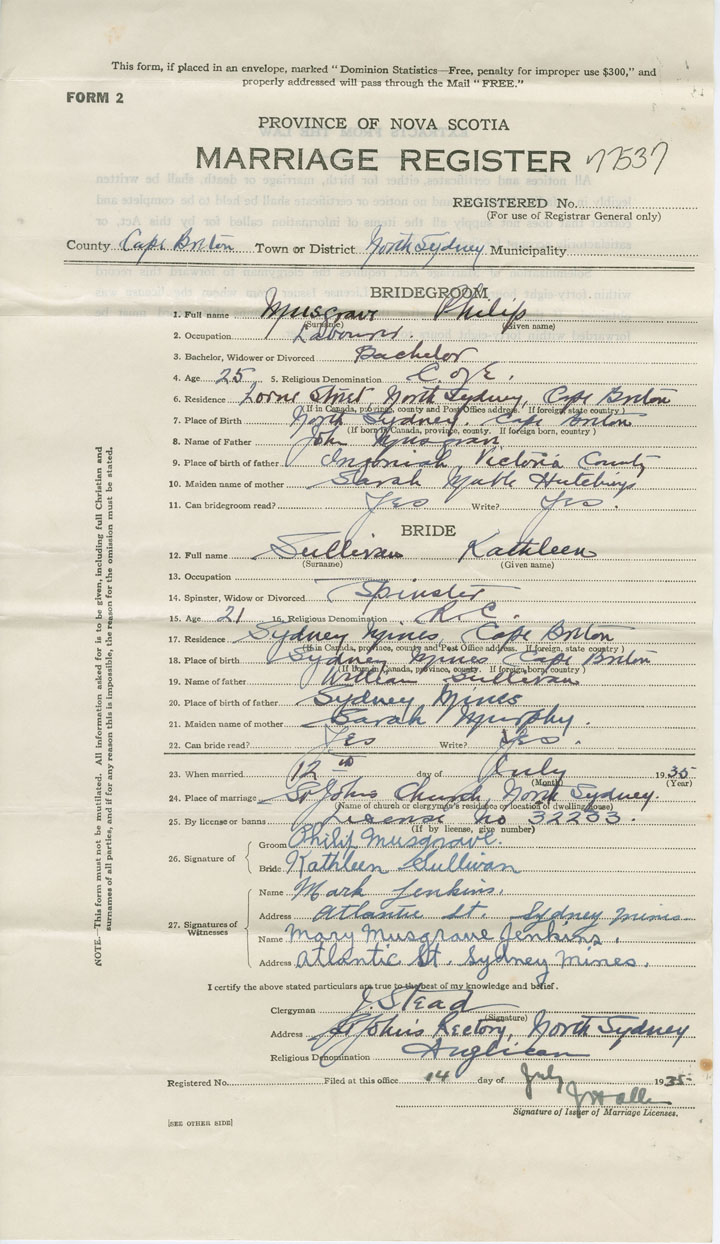 This form, if placed in an envelope, marked "Dominion Statistics—Free, penalty for improper use $300," and
properly addressed will pass through the Mail "FREE."
FORM 2
PROVINCE OF NOVA SCOTIA
MARRIAGE REGISTER 77537
REGISTERED No.
(For use of Registrar General only)
County Cape Breton Town or District North Sydney Municipality
BRIDEGROOM
1. Full name Musgrave Philip
(Surname) (Given name)
2. Occupation Labourer.
3. Bachelor, Widower or Divorced Bachelor
4. Age 25 5. Religious Denomination C. of E.
6. Residence Lorne Street, North Sydney, Cape Breton
(If in Canada, province, county and Post Office address. If foreign, state country)
7. Place of Birth North Sydney. Cape Breton
(If born in Canada, province, county. If foreign born, country)
8. Name of Father John Musgrave
9. Place of birth of father Ingonish, Victoria County
10. Maiden name of mother Sarah Mable Hutchings
11. Can bridegroom read? Yes Write? Yes.
BRIDE
12. Full name Sullivan Kathleen
(Surname) (Given name)
13. Occupation
14. Spinster, Widow or Divorced Spinster
15. Age 21 16. Religious Denomination R. C.
17. Residence Sydney Mines, Cape Breton
(If in Canada, province, county and Post Office address. If foreign, state country)
18. Place of birth Sydney Mines Cape Breton
(If Born in Canada, province, county. If foreign born, country)
19. Name of father William Sullivan
20. Place of birth of father Sydney Mines
21. Maiden name of mother Sarah Murphy.
22. Can bride read? Yes Write? Yes.
23. When married 12th day of July 1935
(Month) (Year)
24. Place of marriage St Johns Church, North Sydney.
(Name of church or clergyman's residence or location of dwelling house)
25. By license or banns License No 32233.
(If by license, give number)
26. Signature of Groom Philip Musgrave.
Bride Kathleen Sullivan
27. Signatures of Witnesses
Name Mark Jenkins.
Address Atlantic St. Sydney Mines
Name Mary Musgrave Jenkins.
Address Atlantic St. Sydney Mines.
I certify the above stated particulars are true to the best of my knowledge and belief.
Clergyman J. Stead
(Signature)
Address St John's Rectory, North Sydney
Religious Denomination Anglican
Registered No. Filed at this office 14 day of July 1935
Signature of Issuer of Marriage Licenses.
[SEE OTHER SIDE]
NOTE.—This form must not be mutilated. All information asked for is to be given, including full Christian and
surnames of all parties, and if for any reason this is impossible, the reason for the omission must be stated.